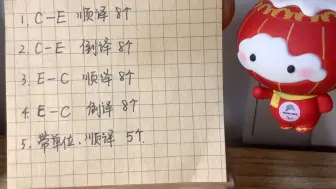 1. C-E 顺译 8个
2. C-E 倒译 8个
3. E-C 顺译 8个
4. E-C 倒译 8个
5. 带单位、顺译 5个